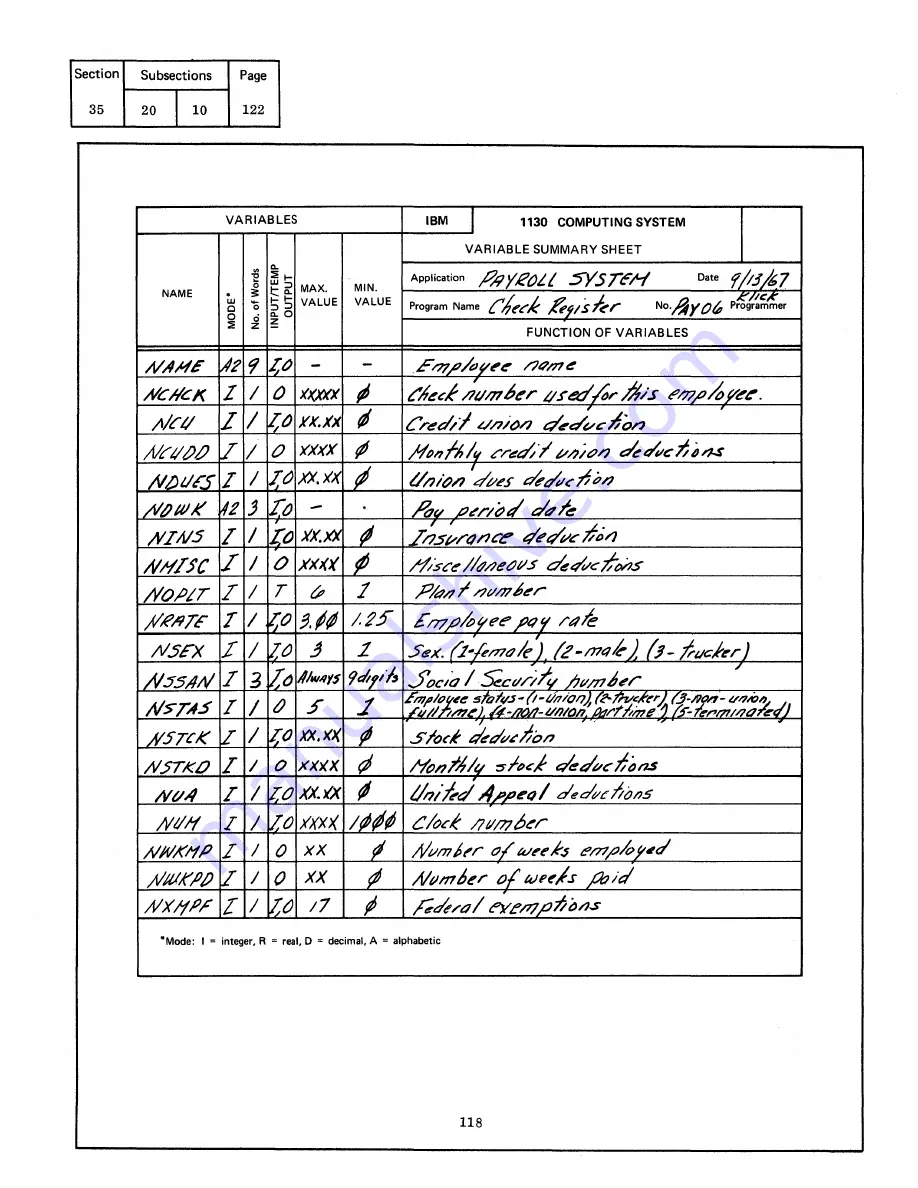 Section Subsections Page
35 20 10 122
VARIABLES IBM 1130 COMPUTING SYSTEM
VARIABLE SUMMARY SHEET
NAME MODE* No. of Words INPUT/TEMP OUTPUT MAX. VALUE MIN. VALUE
Application PAYROLL SYSTEM Date 9/13/67
Program Name Check Register No. PAY06 Klick Programmer
FUNCTION OF VARIABLES
NAME A2 9 I,O – – Employee name
NCHCK I 1 O XXXXX φ Check number used for this employee.
NCU I 1 I,O XX.XX φ Credit union deduction
NCUDD I 1 O XXXX φ Monthly credit union deductions
NDUES I 1 I,O XX.XX φ Union dues deduction
NDWK A2 3 I,O – - Pay period date
NINS I 1 I,O XX.XX φ Insurance deduction
NMISC I 1 O XXXX φ Miscellaneous deductions
NOPLT I 1 T 6 1 Plant number
NRATE I 1 I,O 3.φφ 1.25 Employee pay rate
NSEX I 1 I,O 3 1 Sex. (1-female), (2-male), (3-trucker)
NSSAN I 3 I,O Always 9 digits Social Security number
NSTAS I 1 O 5 1 Employee status-(1-union), (2-trucker), (3-non-union, full time), (4-non-union, part time), (5-terminated)
NSTCK I 1 I,O XX.XX φ Stock deduction
NSTKD I 1 O XXXX φ Monthly stock deductions
NUA I 1 I,O XX.XX φ United Appeal deductions
NUM I 1 I,O XXXX 1φφφ Clock number
NWKMP I 1 O XX φ Number of weeks employed
NWKPD I 1 O XX φ Number of weeks paid
NXMPF I 1 I,O 17 φ Federal exemptions
*Mode: I = integer, R = real, D = decimal, A = alphabetic
118
manualshive.com